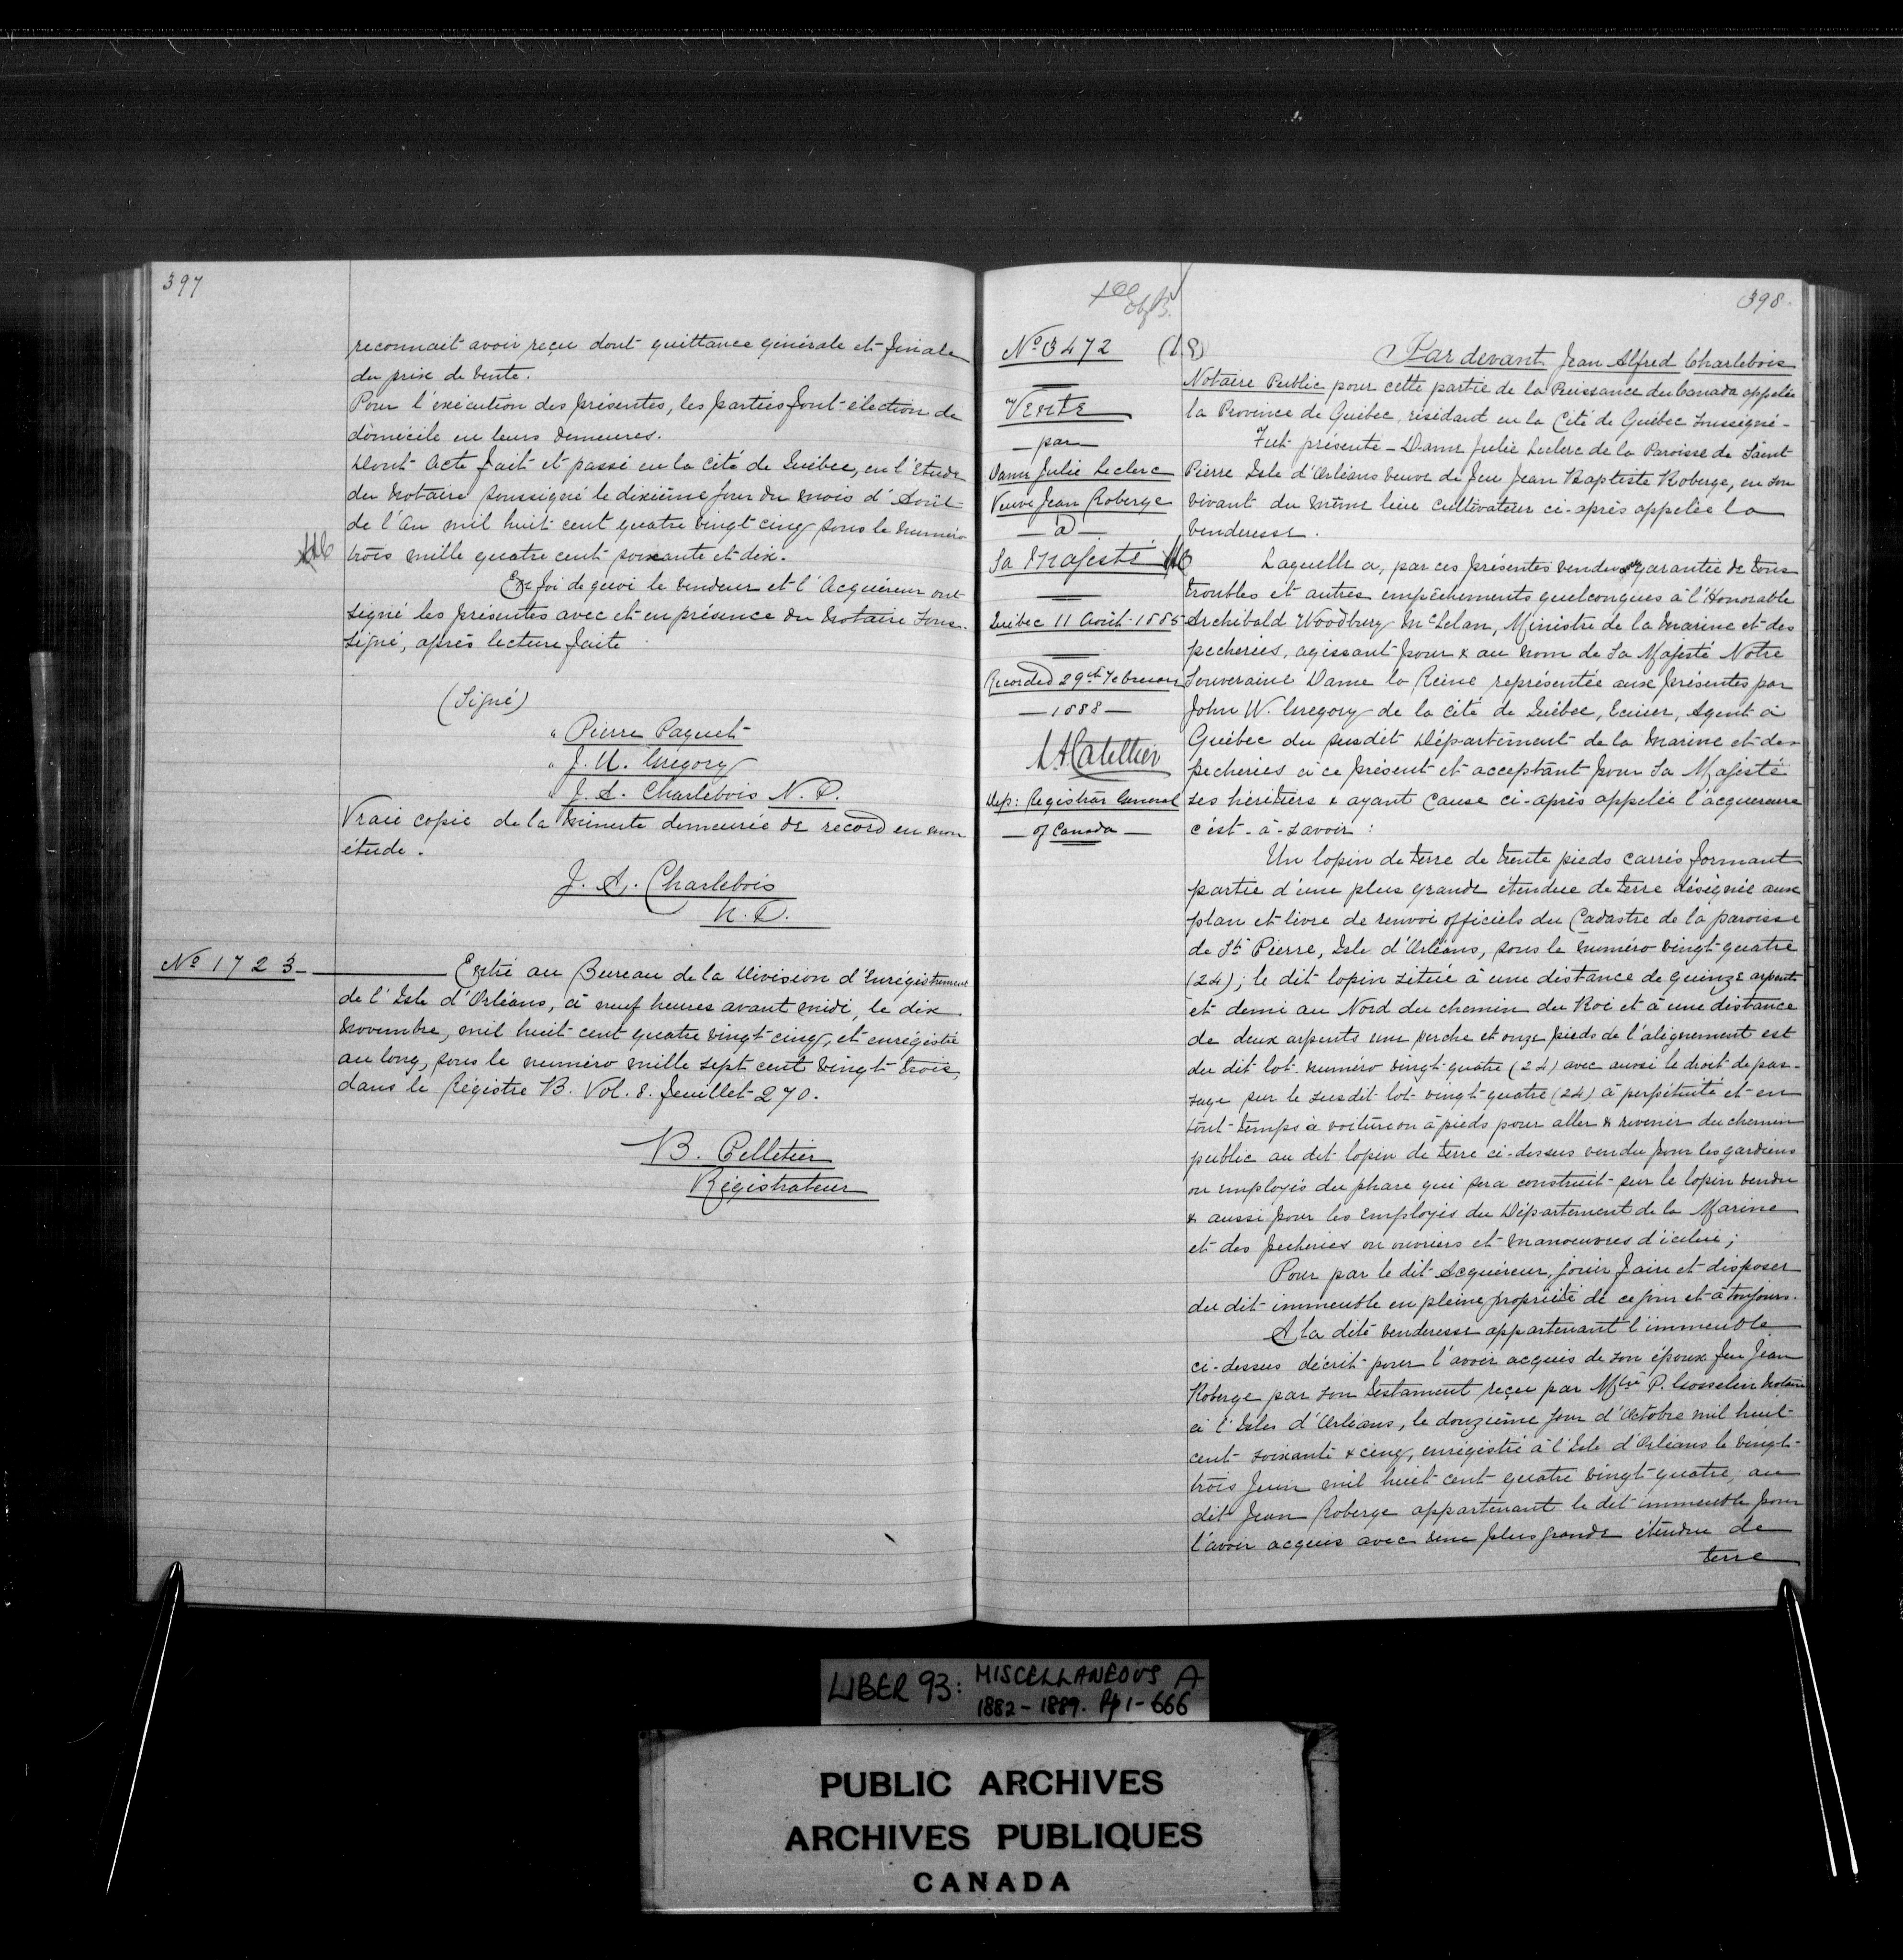 397
reconnait avoir reçu dont quittance générale et finale
du prix de vente.
Pour l'exécution des présentes, les parties font élection de
domicile en leurs demeures.
Dont Acte fait et passé en la cité de Québec, en l'Etude
du Notaire soussigné le dixième jour du mois d'Août
de l'An mil huit cent quatre vingt cinq sous le numéro
trois mille quatre cent soixante et dix.
En foi de quoi le vendeur et l'Acquéreur ont
signé les présentes avec et en présence du Notaire sous-
signé, après lecture faite
(Signé)
" Pierre Paquet
" J. U. Gregory
" J. A. Charlebois N. P.
Vraie copie de la Minute demeurée de record en mon
étude.
J. A. Charlebois
N. P.
No 1723
Entré au Bureau de la Division d'Enrégistrement
de l'Isle d'Orléans, à neuf heures avant midi, le dix
Novembre, mil huit cent quatre vingt cinq, et enrégistré
au long, sous le numéro mille sept cent vingt trois,
dans le Régistre B. Vol. 8. feuillet 270.
B. Pelletier
Régistrateur
398
No 3472
Vente
par
Dame Julie Leclerc
Veuve Jean Roberge
à
Sa Majesté
Québec 11 Août 1885
Recorded 29th February
1888
L A Catellier
Dep: Registrar General
of Canada
Par devant Jean Alfred Charlebois
Notaire Public pour cette partie de la Puissance du Canada appelée
la Province de Québec, résidant en la Cité de Québec soussigné -
Fut présente - Dame Julie Leclerc de la Paroisse de Saint
Pierre Isle d'Orléans veuve de feu Jean Baptiste Roberge, en son
vivant du même lieu Cultivateur ci-après appelée la
venderesse.
Laquelle a, par ces présentes vendu avec garantie de tous
troubles et autres empêchements quelconques à l'Honorable
Archibald Woodbury McLelan, Ministre de la Marine et des
pecheries, agissant pour & au nom de Sa Majesté Notre
Souveraine Dame la Reine représentée aux présentes par
John W. Gregory de la cité de Québec, Ecuier, Agent à
Québec du susdit Département de la Marine et des
pecheries à ce présent et acceptant pour Sa Majesté
ses héritiers & ayant cause ci-après appelée l'acquereure
c'ést-à-savoir :
Un lopin de terre de trente pieds carrés formant
partie d'une plus grande étendue de terre désignée aux
plan et livre de renvoi officiels du Cadastre de la paroisse
de St Pierre, Isle d'Orléans, sous le numéro vingt-quatre
(24); le dit lopin situé à une distance de quinze arpents
et demi au Nord du chemin du Roi et à une distance
de deux arpents une perche et onze pieds de l'alignement est
du dit lot numéro vingt-quatre (24) avec aussi le droit de pas-
sage sur le susdit lot vingt-quatre (24) à perpétuité et en
tout temps à voiture ou à pieds pour aller & revenir du chemin
public au dit lopin de terre ci-dessus vendu pour les gardiens
ou employés du phare qui sera construit sur le lopin vendu
& aussi pour les Employés du Département de la Marine
et des pecheries ou ouvriers et manoeuvres d'icelui;
Pour par le dit Acquéreur, jouir faire et disposer
du dit immeuble en pleine propriété de ce jour et à toujours.
A la dite venderesse appartenant l'immeuble
ci-dessus décrit pour l'avoir acquis de son époux feu Jean
Roberge par son testament reçu par Mtre P. Gosselin Notaire
à l'Isle d'Orléans, le douzième jour d'Octobre mil huit
cent soixante & cinq, enrégistré à l'Isle d'Orléans le vingt-
trois Juin mil huit cent quatre vingt-quatre, au
dit Jean Roberge appartenant le dit immeuble pour
l'avoir acquis avec une plus grande étendue de
terre
LIBER 93: MISCELLANEOUS A
1882-1889. Pp 1-666
PUBLIC ARCHIVES
ARCHIVES PUBLIQUES
CANADA